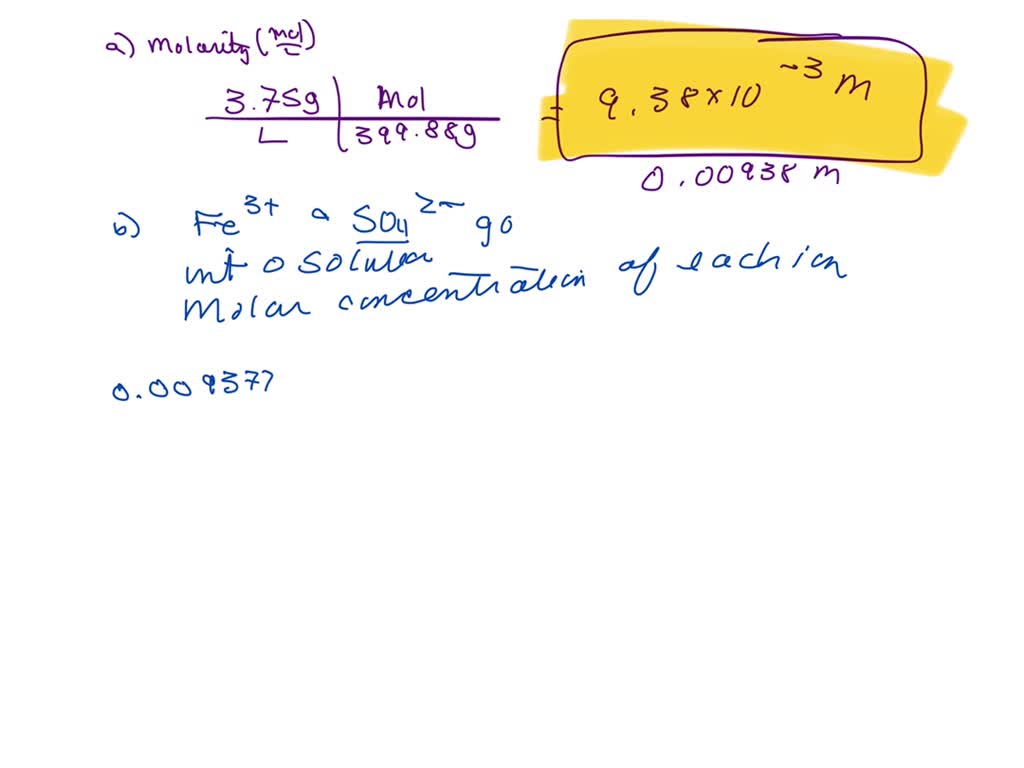 a) Molarity (mol/L)
3.75g | Mol
L | 399.88g
= 9.38×10⁻³ M
0.00938 m
b) Fe³⁺ SO₄²⁻ go
into solution
Molar concentration of each ion
0.009377